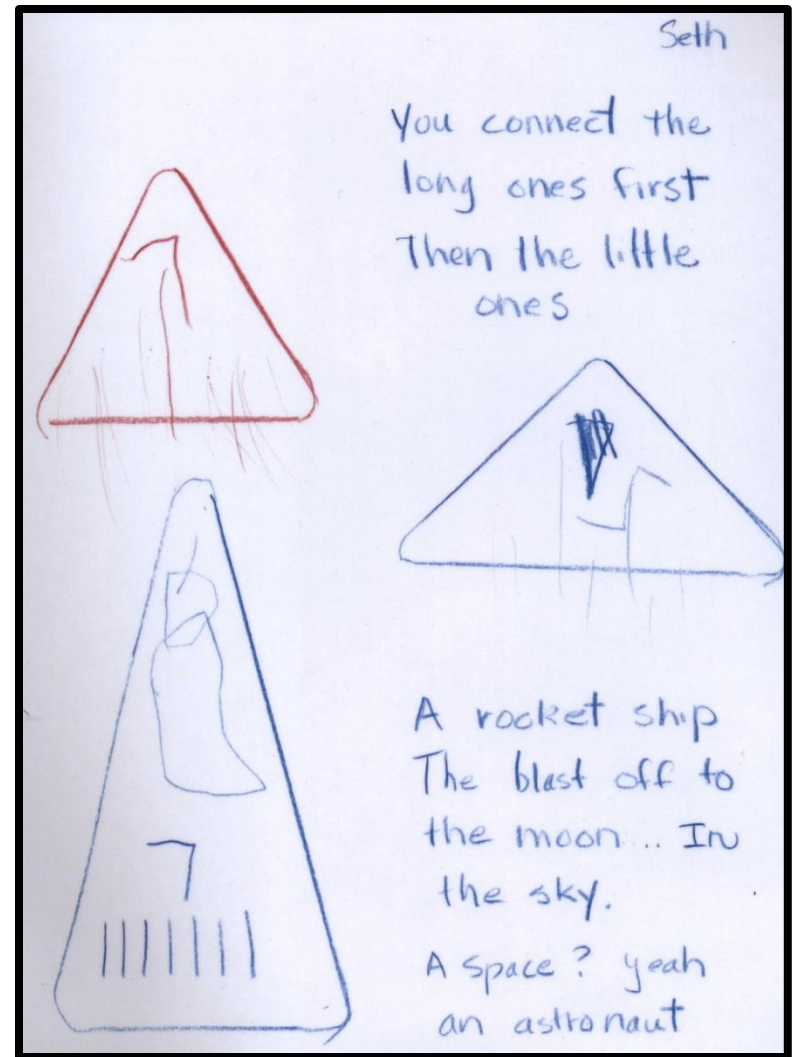 Seth
You connect the
long ones first
Then the little
ones
A rocket ship
The blast off to
the moon... In
the sky.
A space? yeah
an astronaut